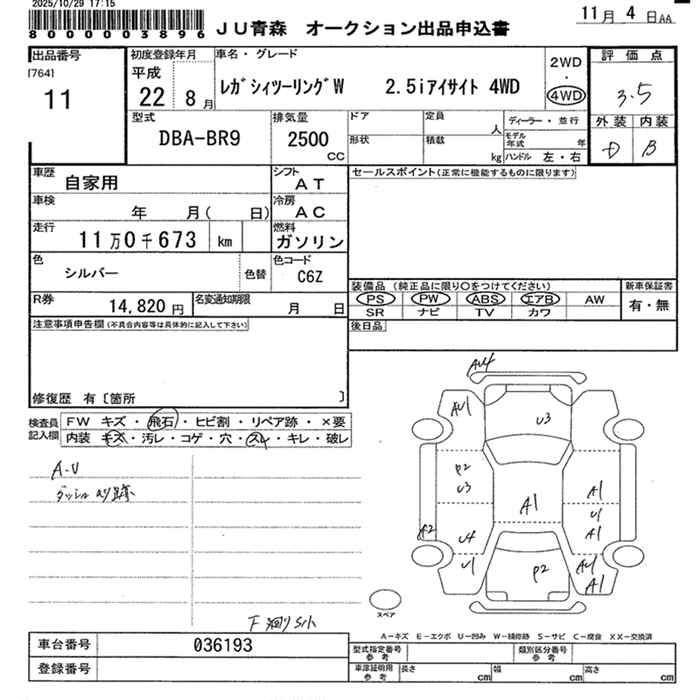 2025/10/29 17:15
80000003896
JU青森 オークション出品申込書
11月 4日AA
出品番号
[764]
11
初度登録年月
平成
22 8月
車名・グレード
レガシィツーリングW 2.5iアイサイト 4WD
2WD
・
4WD
評価点
3.5
外装 内装
D B
型式
DBA-BR9
排気量
2500
CC
ドア
形状
定員
人
積載
kg
ディーラー・並行
モデル年式 年
ハンドル 左・右
車歴
自家用
シフト
AT
車検
年 月( 日)
冷房
AC
走行
11万0千673 km
燃料
ガソリン
色
シルバー
色替
色コード
C6Z
セールスポイント(正常に機能するものに限ります)
装備品(純正品に限り○をつけてください)
PS PW ABS エアB AW
SR ナビ TV カワ
新車保証書
有・無
R券
14,820円
名変通知期限
月 日
後日品
注意事項申告欄(不具合内容等は具体的に記入して下さい)
修復歴 有〔箇所 〕
検査員記入欄
FW キズ・飛石・ヒビ割・リペア跡・×要
内装 キズ・汚レ・コゲ・穴・スレ・キレ・破レ
A・U
AU4
AU1
U3
P2
U3
A1
A1
U1
A1
A2
U4
U1
P2
AU1
A1
スペア
A−キズ E−エクボ U−凹み W−補修跡 S−サビ C−腐食 XX−交換済
車台番号
036193
登録番号
型式指定番号
参考
類別区分番号
参考
車庫証明用
参考
長さ cm
幅 cm
高さ cm